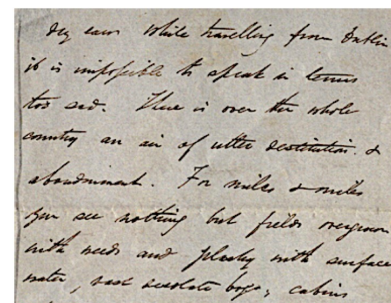 my ears while travelling from Dublin
it is impossible to speak in terms
too sad. There is over the whole
country an air of utter destitution &
abandonment. For miles & miles
you see nothing but fields overgrown
with weeds and plashy with surface
water, vast desolate bogs, cabins